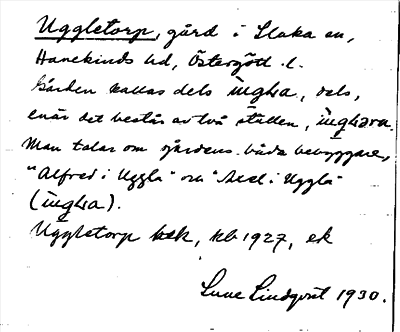 Uggletorp, gård i Slaka sn,
Hanekinds hd, Östergötl. l.
Gården kallas dels ùgḷa, dels,
enär det består av två ställen,
Man talar om gårdens båda bebyggare,
"Alfred i Uggla" och "Axel i Uggla"
Uggletorp kbk, kb 1927, ek
Sune Lindqvist 1930.